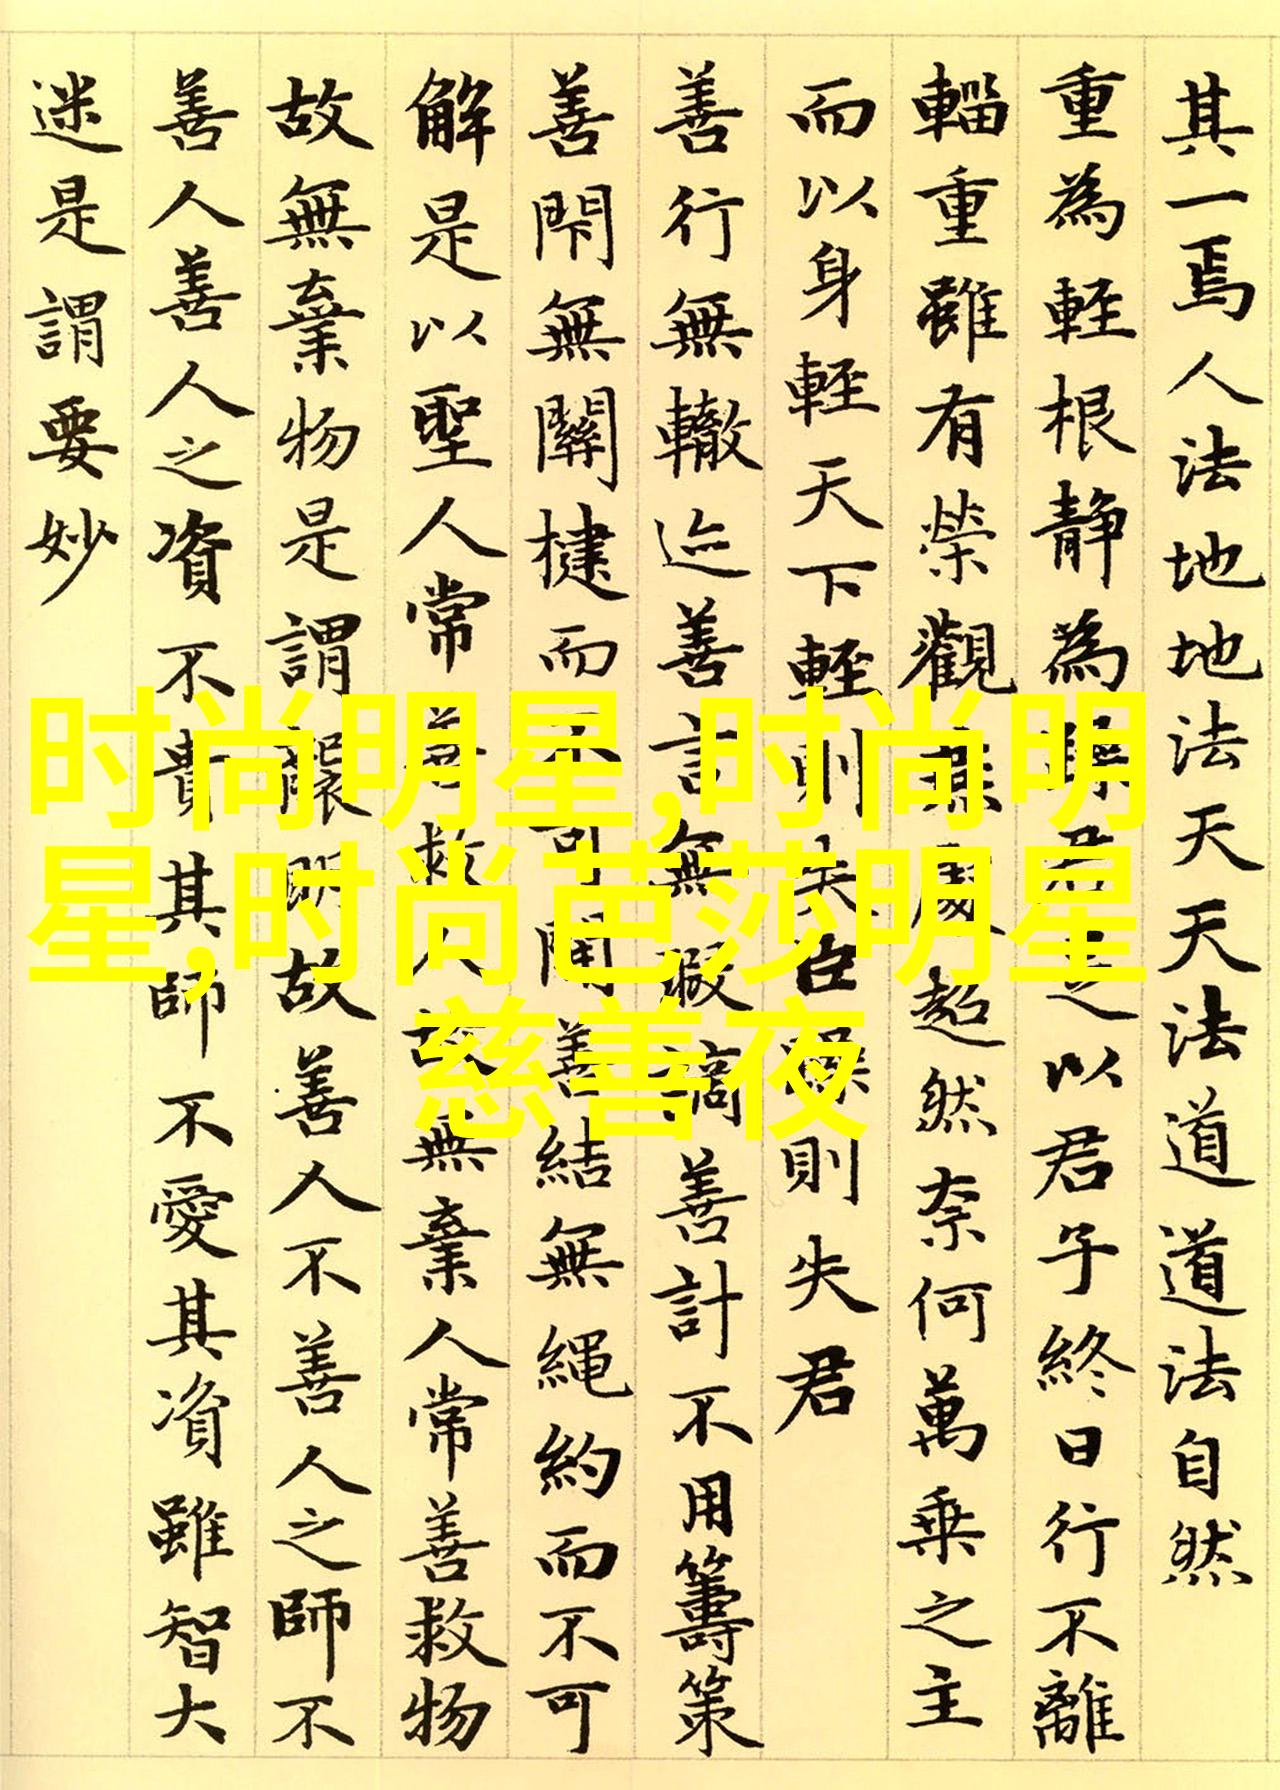 其一焉人法地地法天天法道道法自然
重為輕根靜為躁君是以君子終日行不離
輜重雖有榮觀燕處超然奈何萬乘之主
而以身輕天下輕則失臣躁則失君
善行無轍迹善言無瑕謫善計不用籌策
善閇無關楗而不可開善結無繩約而不可
解是以聖人常善救人故無棄人常善救物
故無棄物是謂襲明故善人不善人之師不
善人善人之資不貴其師不愛其資雖智大
迷是謂要妙
时尚明星,时尚明
星,时尚芭莎明星
慈善夜